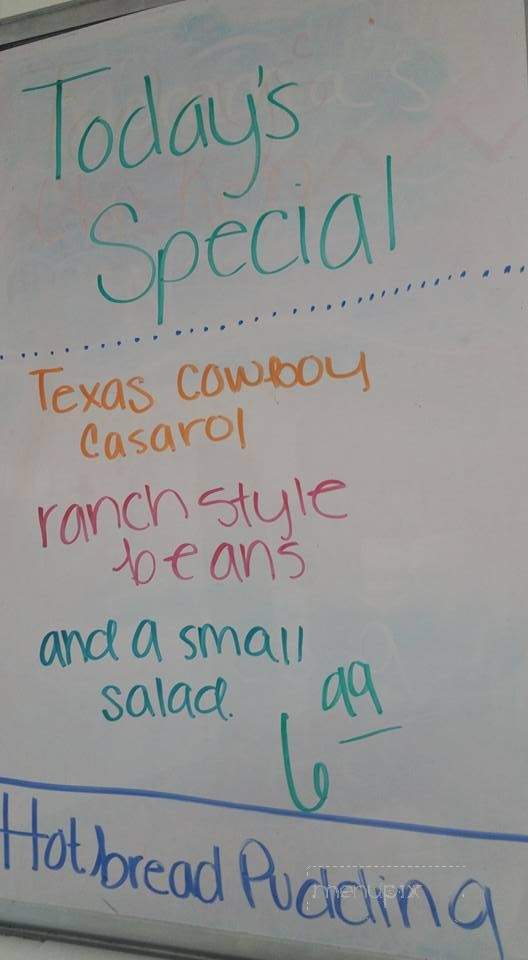 Today's
Special
Texas cowboy
casarol
ranch style
beans
and a small
salad.
6 99
Hot bread Pudding
menupix